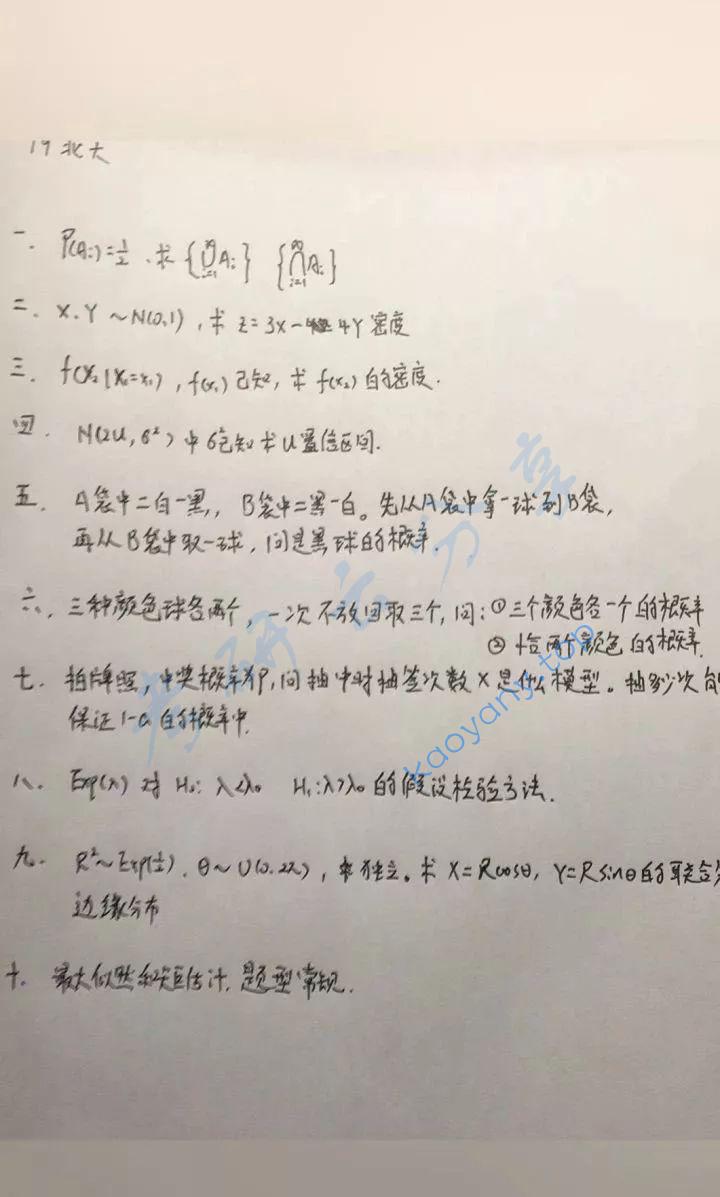 19北大
一. P(Ai)=1/2 . 求 {⋃_{i=1}^{∞}Ai} {⋂_{i=1}^{∞}Ai}
二. X.Y ~N(0,1) , 求 z=3X- 4Y 密度
三. f(x₂|x₁=x₁) , f(x₁) 已知, 求 f(x₂) 的密度.
四. N(2u, σ²) 中 σ²已知 求 u 置信区间.
五. A袋中二白一黑, B袋中二黑一白。先从A袋中拿一球到B袋,
再从B袋中取一球, 问是黑球的概率.
六. 三种颜色球各两个, 一次不放回取三个, 问: ①三个颜色各一个的概率
②恰两个颜色的概率.
七. 拍牌照, 中奖概率为P, 问抽中时抽签次数X是什么模型。抽多少次
保证1-α的概率中.
八. Exp(λ) 对 H₀: λ<λ₀ H₁:λ>λ₀ 的假设检验方法.
九. R²~Exp(1/2) . θ~U(0.2π) , 独立。求 X=Rcosθ, Y=Rsinθ的联合
边缘分布
十. 最大似然和矩估计. 题型常规.
考研云分享
kaoyany.top